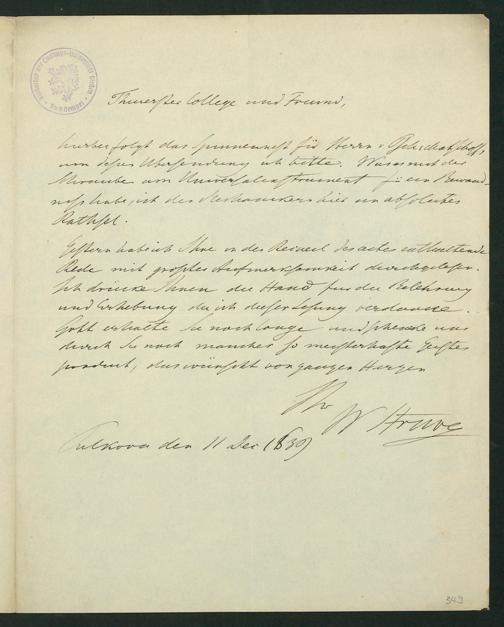 Theuerster College und Freund,
hierbei folgt das Spinnennest für Herrn v.
um dessen Übersendung ich bitte. Was es mit der
Schraube am Universalinstrument für eine Bewand-
niss habe, ist den Mechanikern hier ein absolutes
Räthsel.
Gestern habe ich Ihre in der Recueil des actes enthaltende
Rede mit großer Aufmerksamkeit durchgelesen.
Ich drücke Ihnen die Hand für die Belehrung
und Erhebung die ich dieser Lesung verdanke.
Gott erhalte Sie noch lange und schenke uns
durch Sie noch manches so meisterhafte Geistes
product, das wünscht von ganzem Herzen
Ihr
W Struve
Pulkova den 11 Dec (1839)
349